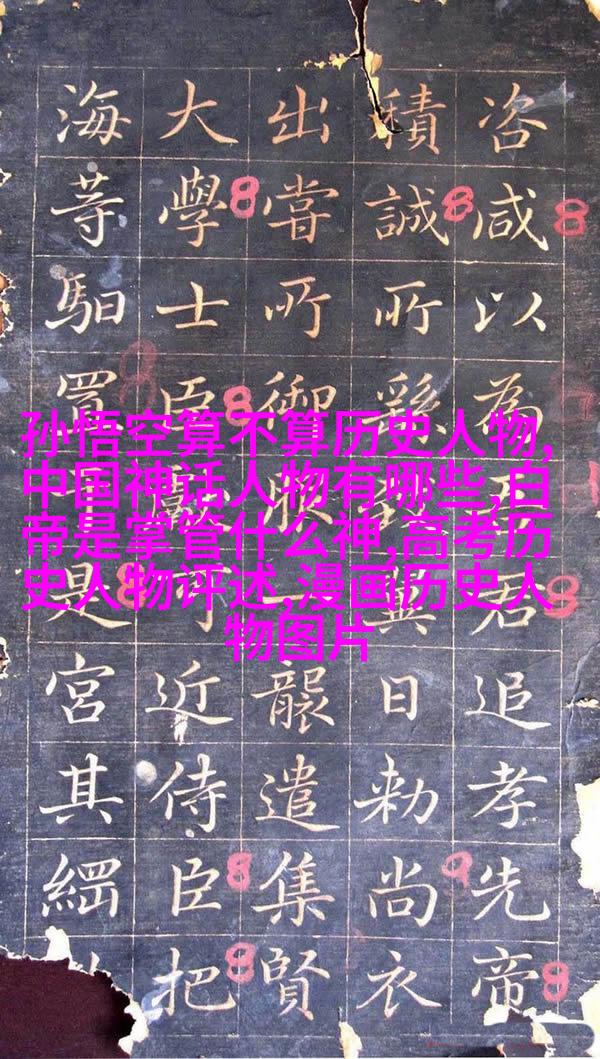 咨咸以為君追孝先帝
積誠所繇日勑尚衣
出嘗所御服襲遣集賢
大學士臣可近侍臣把
海等馹置是宮其綱
孙悟空算不算历史人物,
中国神话人物有哪些,白
帝是掌管什么神,高考历
史人物评述,漫画历史人
物图片